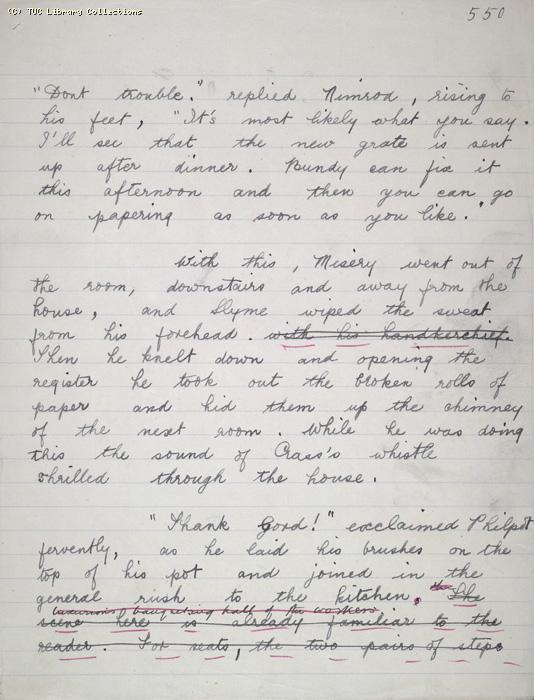 (C) TUC Library Collections
550
"Dont trouble." replied Nimrod, rising to
his feet, "It's most likely what you say.
I'll see that the new grate is sent
up after dinner. Bundy can fix it
this afternoon and then you can go
on papering as soon as you like."
With this, Misery went out of
the room, downstairs and away from the
house, and Slyme wiped the sweat
from his forehead. with his handkerchief.
Then he knelt down and opening the
register he took out the broken rolls of
paper and hid them up the chimney
of the next room. While he was doing
this the sound of Crass's whistle
shrilled through the house.
"Thank Gord!" exclaimed Philpot
fervently, as he laid his brushes on the
top of his pot and joined in the
general rush to the kitchen. the The
luxurious banqueting hall of the workmen
scene here is already familiar to the
reader. For seats, the two pairs of steps